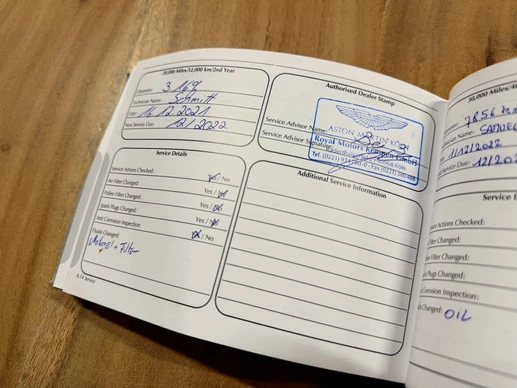 20,000 Miles/32,000 km/2nd Year
3 169
Technician Name: Schmitt
Date: 16.12.2021
Next Service Due: 12/2022
Authorised Dealer Stamp
Service Advisor Name:
Service Advisor Signature:
ASTON MARTIN KÖLN
Royal Motors Kempen GmbH
Service Details
Service Actions Checked: Yes / No
Air Filter Changed: Yes / No
Pollen Filter Changed: Yes / No
Spark Plugs Changed: Yes / No
Anti Corrosion Inspection: Yes / No
Fluids Changed:
Motoröl + Filter
Additional Service Information
8.14 Service
30,000 Miles/
7856 km
Name: SAMUEL
11/12/2022
Service Due: 12/202
Service
Actions Checked:
Filter Changed:
Filter Changed:
Plugs Changed:
Corrosion Inspection:
Changed: OIL